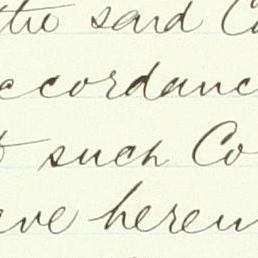 the said Co
accordanc
of such Co
ave herein